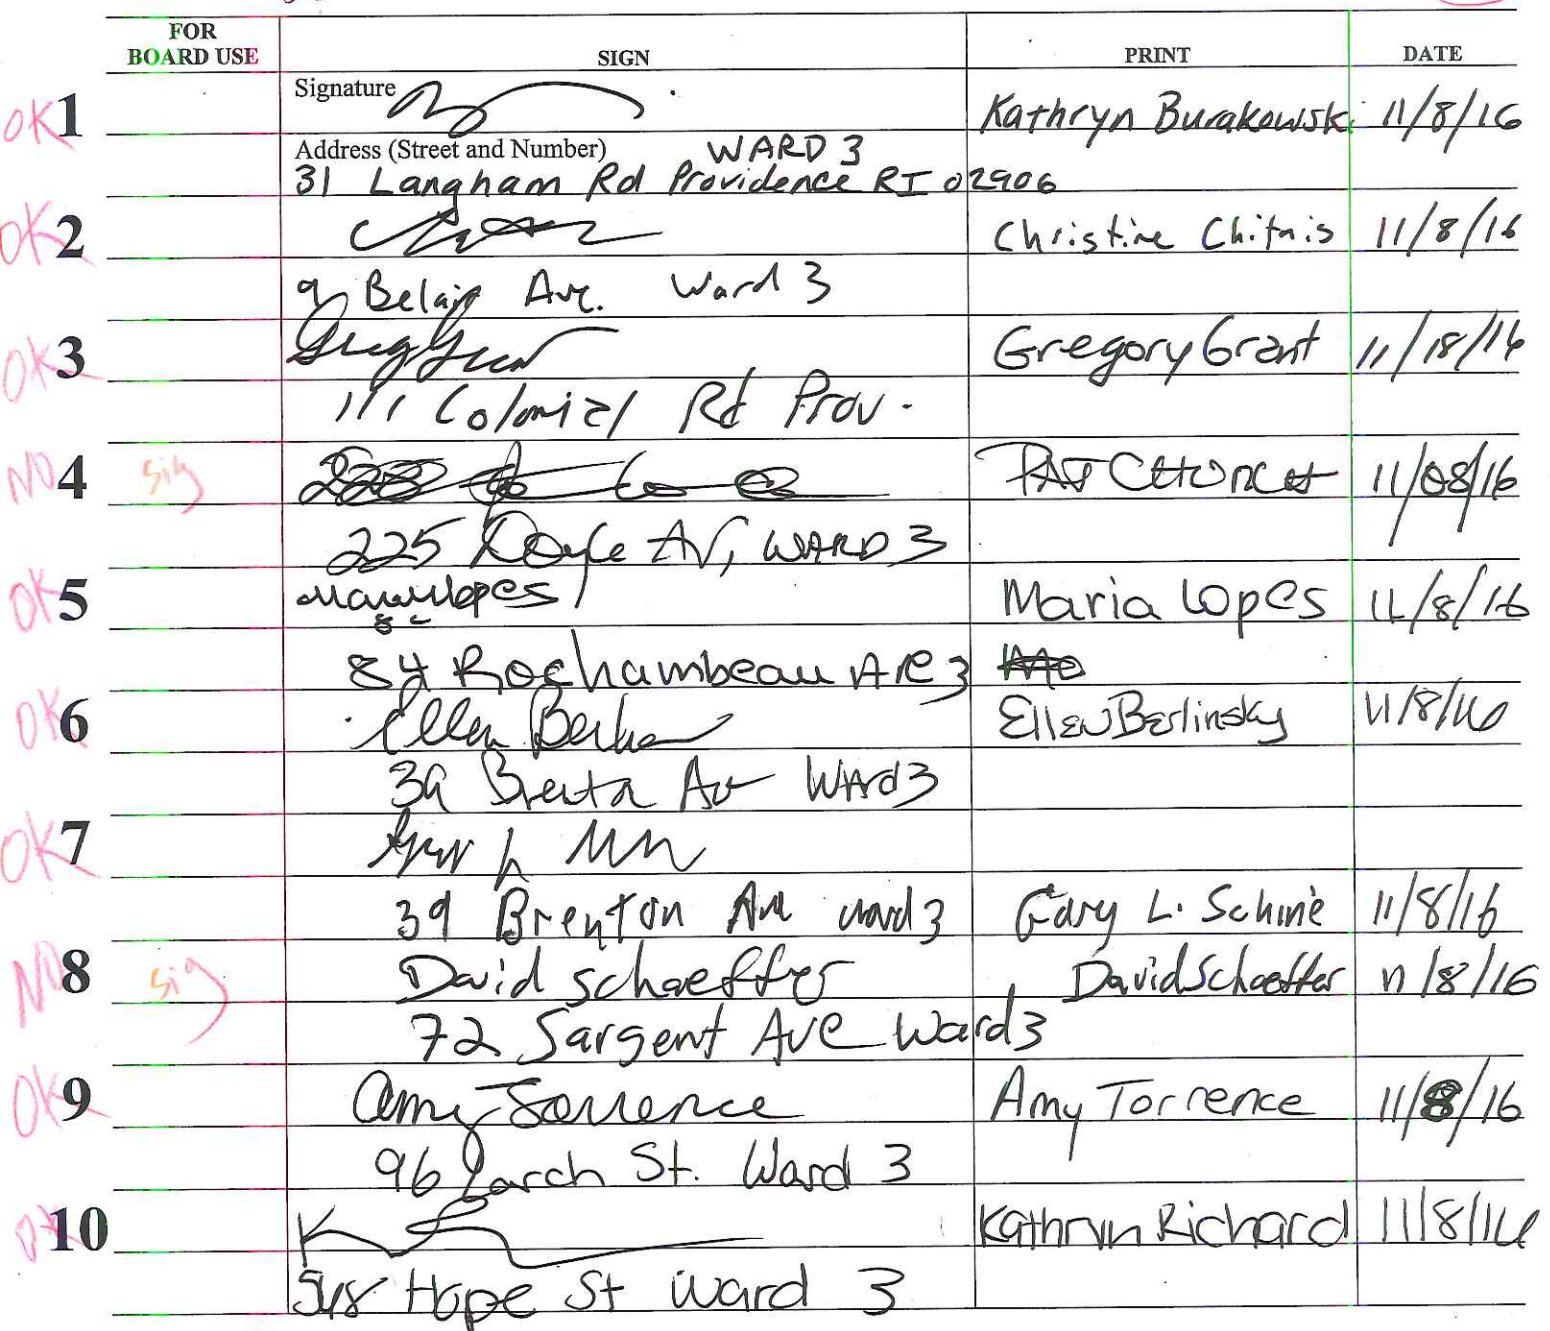 FOR BOARD USE SIGN PRINT DATE
OK 1 Signature Kathryn Burakowski 11/8/16
Address (Street and Number) WARD 3
31 Langham Rd Providence RI 02906
OK 2 Christine Chitnis 11/8/16
9 Belair Ave. Ward 3
OK 3 Gregory Grant 11/18/16
111 Colonial Rd Prov.
NO 4 sig 11/08/16
225 Doyle AV, WARD 3
OK 5 Maria Lopes Maria Lopes 11/8/16
84 Rochambeau Ave 3
OK 6 Ellen Ellen Berlinsky 11/8/16
Ward 3
OK 7
39 Brenton Ave ward 3 Gary L. Schine 11/8/16
NO 8 sig David Schaeffer David Schaeffer 11/8/16
72 Sargent Ave Ward 3
OK 9 Amy Torrence Amy Torrence 11/8/16
96 Larch St. Ward 3
OK 10 Kathryn Richard 11/8/16
548 Hope St Ward 3